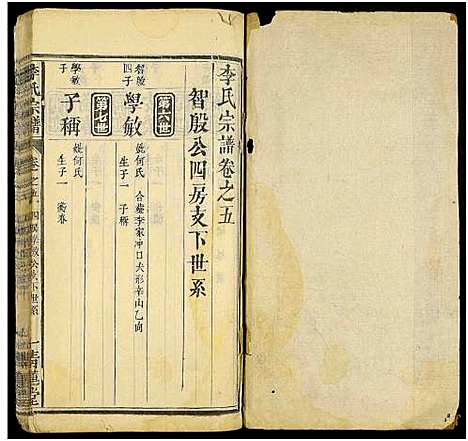 李氏宗譜卷之五
智殷公四房支下世系
第六世
智殷四子
學敏
妣何氏 合塟李家冲口犬形辛山乙向
生子一 子稱
第七世
學敏子
子稱
妣何氏
生子一
李氏宗譜
卷之五
公支下世系
青蓮堂